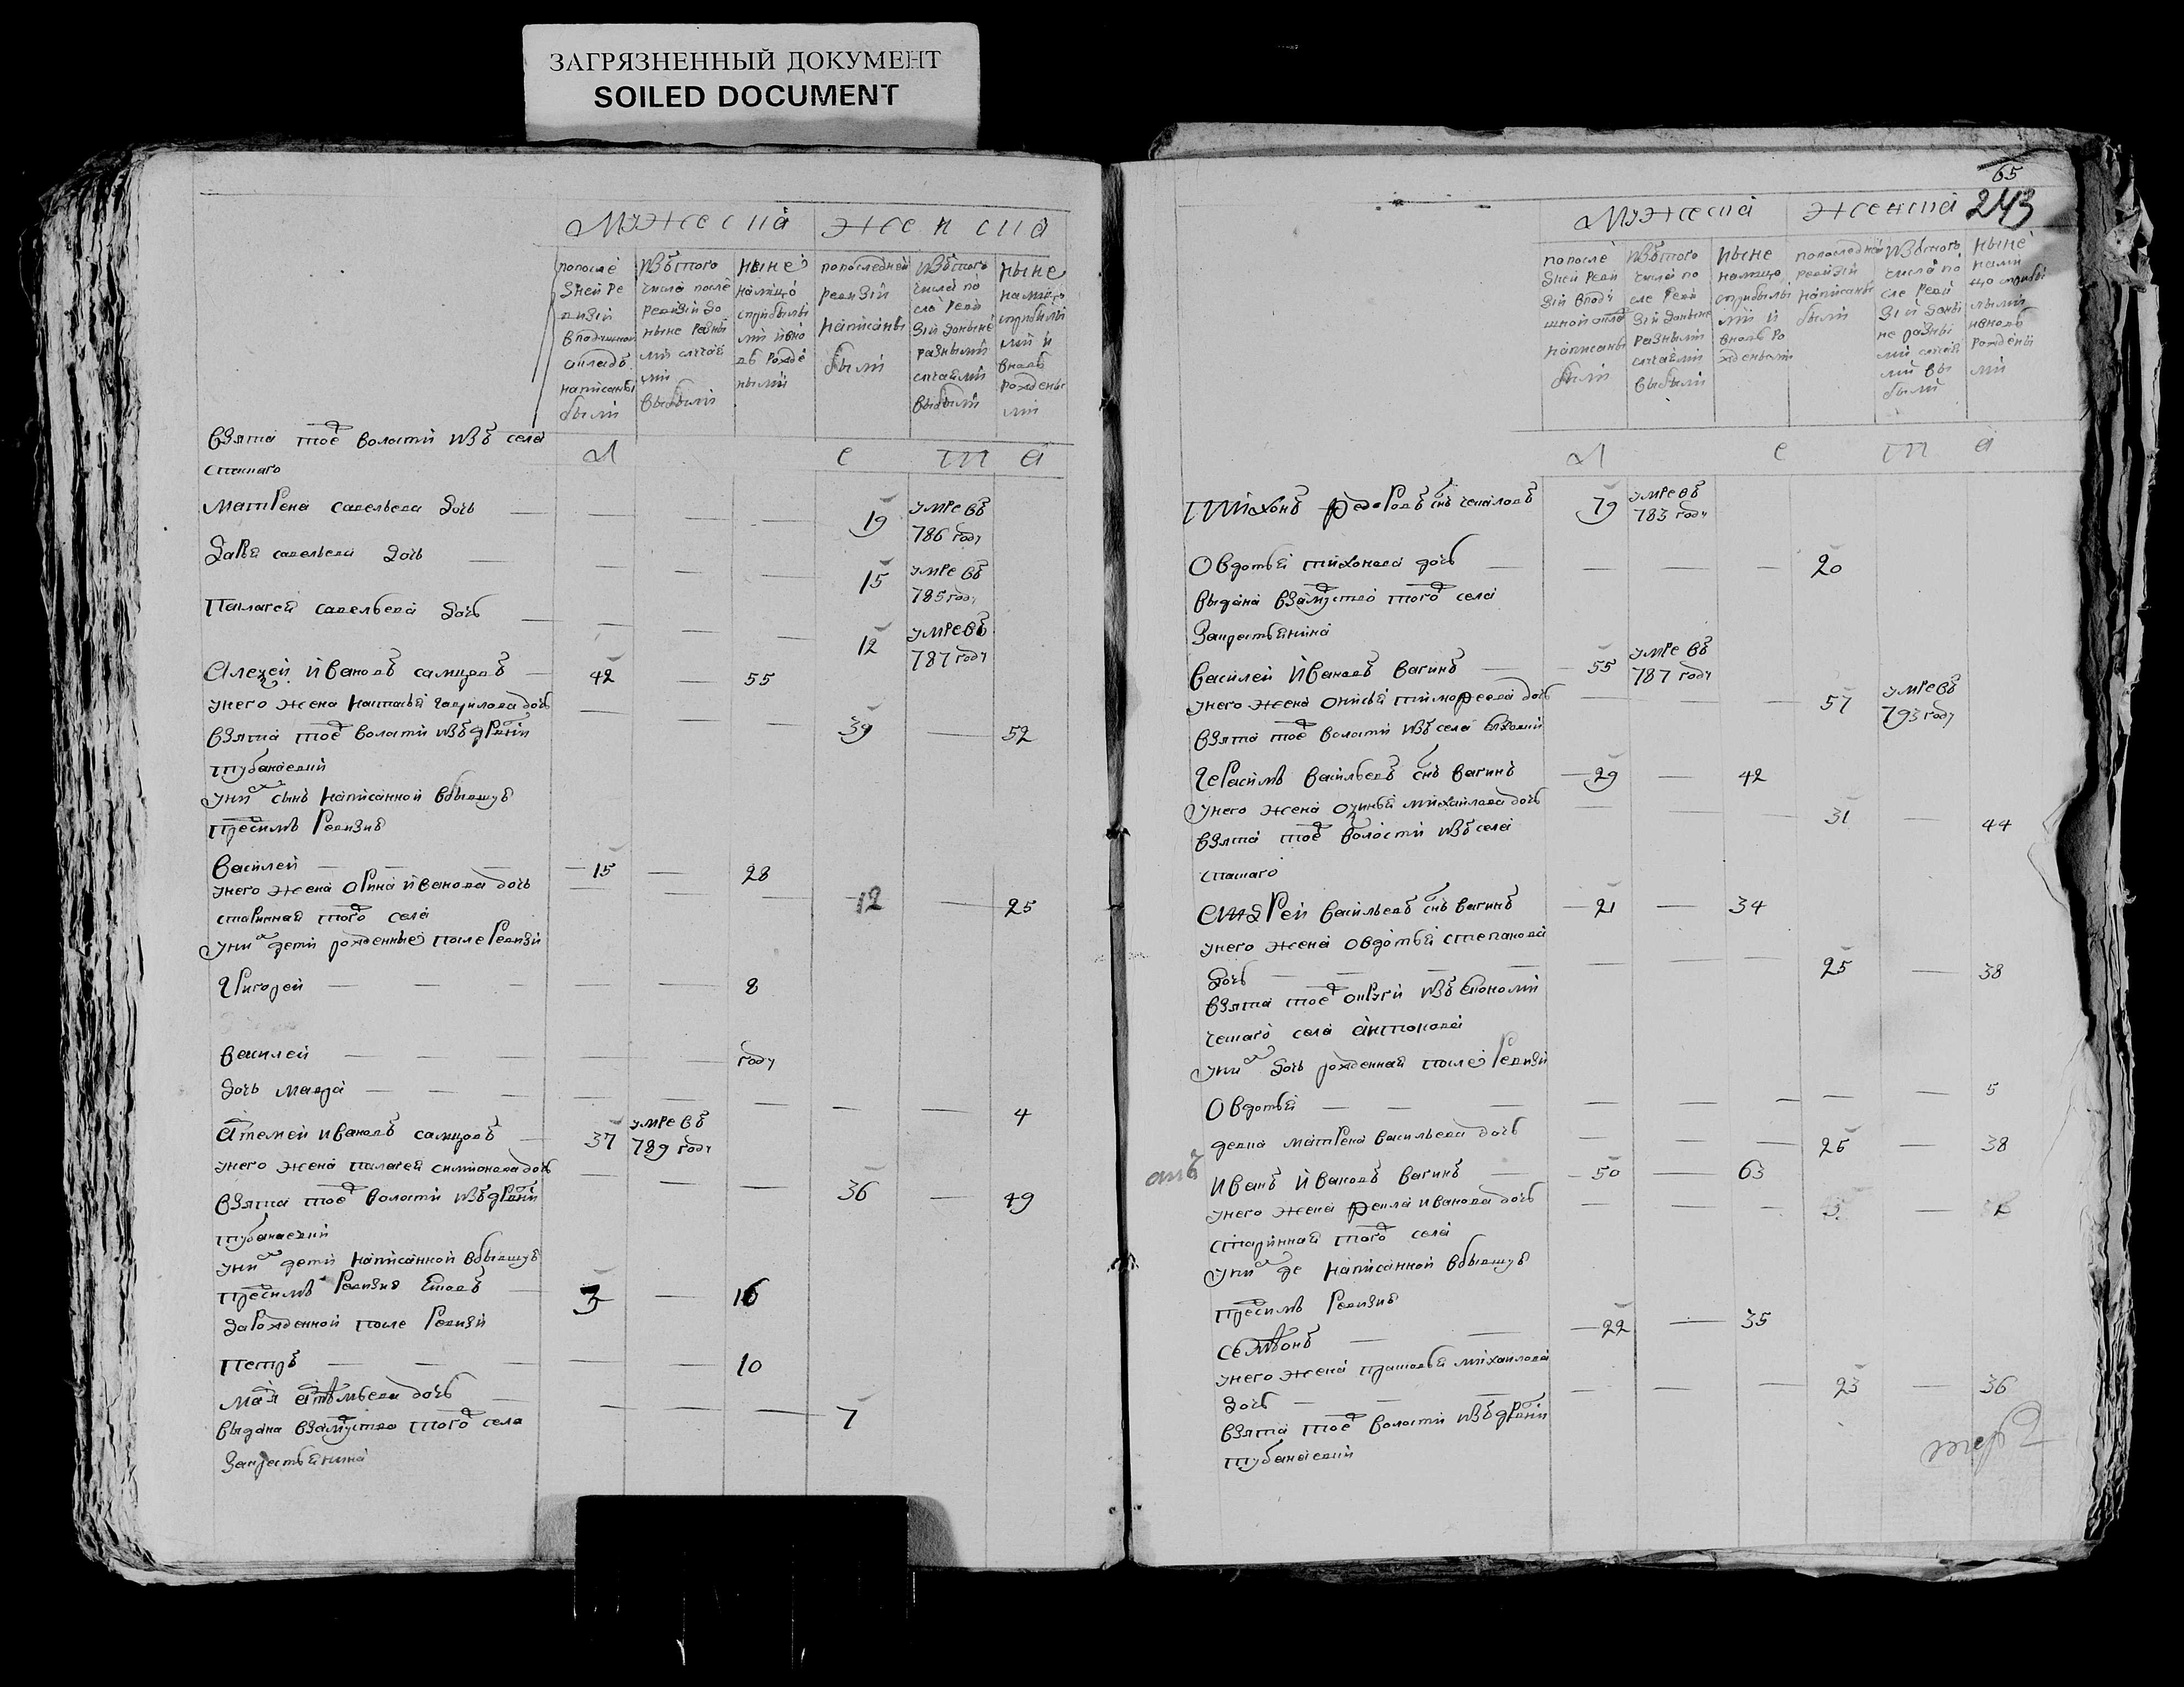 ЗАГРЯЗНЕННЫЙ ДОКУМЕНТ
SOILED DOCUMENT
Мужеска Женска
попослѣ
дней ре
визіи
вподушном
окладѣ
написаны
были
изъ того
числа после
ревизіи до
ныне разны
ми случая
ми
выбыли
ныне
налицо
сприбылы
ми ивно
вь рожде
ными
попоследней
ревизіи
написаны
были
изъ того
числа по
сле реви
зіи доныне
разными
случаями
выбыли
ныне
налицо
сприбылы
ми и
вновь
рожденны
ми
Л е т а
взята тое волости изъ села
Спаскаго
Матрена савельева дочь — — — — 19 умре въ
786 году
Дарья савельева дочь — — — — 15 умре въ
785 году
Палагея савельева дочь — — — — 12 умре въ
787 году
Алексей Ивановъ самцовъ — 42 — 55
унего жена настасья гаврилова дочь — — — 39 — 52
взята тое волости изъ дрвни
тубанаевки
уних сынъ написанной вбывшую
пред симъ ревизию
Василей — — — 15 — 28
унего жена орина иванова дочь — — — 12 — 25
старинная того села
уних дети рожденные после ревизіи
Григорей — — — — — 8
Василей — — — — — году
дочь мавра — — — — — — — — 4
Артемей ивановъ самцовъ — 37 умре въ
789 году
унего жена палагея симионова дочь — — — 36 — 49
взята тое волости изъ дрвни
тубанаевки
уних дети написанной вбывшую
пред симъ ревизию Егоръ — 3 — 16
да рожденной после ревизіи
Петръ — — — — — 10
марья артемьева дочь — — — — 7
выдана взамуство того села
закрестьянина
65
243
Мужеска Женска
попослѣ
дней реви
зіи вподу
шном окла
написаны
были
изъ того
числа по
сле реви
зіи доныне
разными
случаями
выбыли
ныне
налицо
сприбылы
ми и
вновь ро
жденными
попоследней
ревизіи
написаны
были
изъ того
числа по
сле реви
зіи доны
не разны
ми случая
ми вы
были
ныне
нали
цо сприбы
лыми
ивновь
рожденны
ми
Л е т а
Тихонъ федоровъ снъ чекаловъ 79 умре въ
783 году
Овдотья тихонова дочь — — — — 20
выдана взамуство того села
закрестьянина
Василей Ивановъ вагинъ — 55 умре въ
787 году
унего жена онисья тимофеева дочь — — — 57 умре въ
793 году
взята тое волости изъ села
Герасимъ васильевъ снъ вагинъ — 29 — 42
унего жена михайлова дочь — — — 31 — 44
взята тое волости изъ села
спаскаго
Андрей васильевъ снъ вагинъ — 21 — 34
унего жена овдотья степанова
дочь — — — — — — 25 — 38
взята тое округи изъ економи
ческаго села антонова
уних дочь рожденная после ревизіи
Овдотья — — — — — — — — 5
девка матрена васильева дочь — — — 25 — 38
Иванъ Ивановъ вагинъ — 50 — 63
унего жена фекла иванова дочь — — —
старинная того села
уних де написанной вбывшую
пред симъ ревизию
семионъ — — — 22 — 35
унего жена прасковья михайлова
дочь — — — — 23 — 36
взята тое волости изъ дрвни
тубанаевки